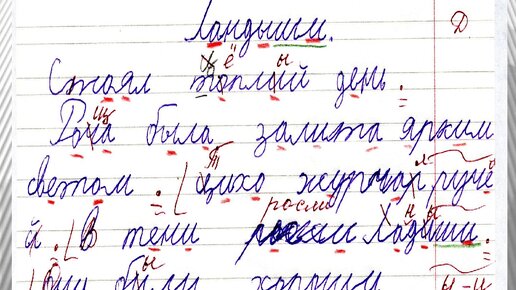 Ландыши. Д
Стоял тёплый день.
Роща была залита ярким
светом. Тихо журчал ручё
й. В тени росли Хандыши.
Они были хороши ы-и